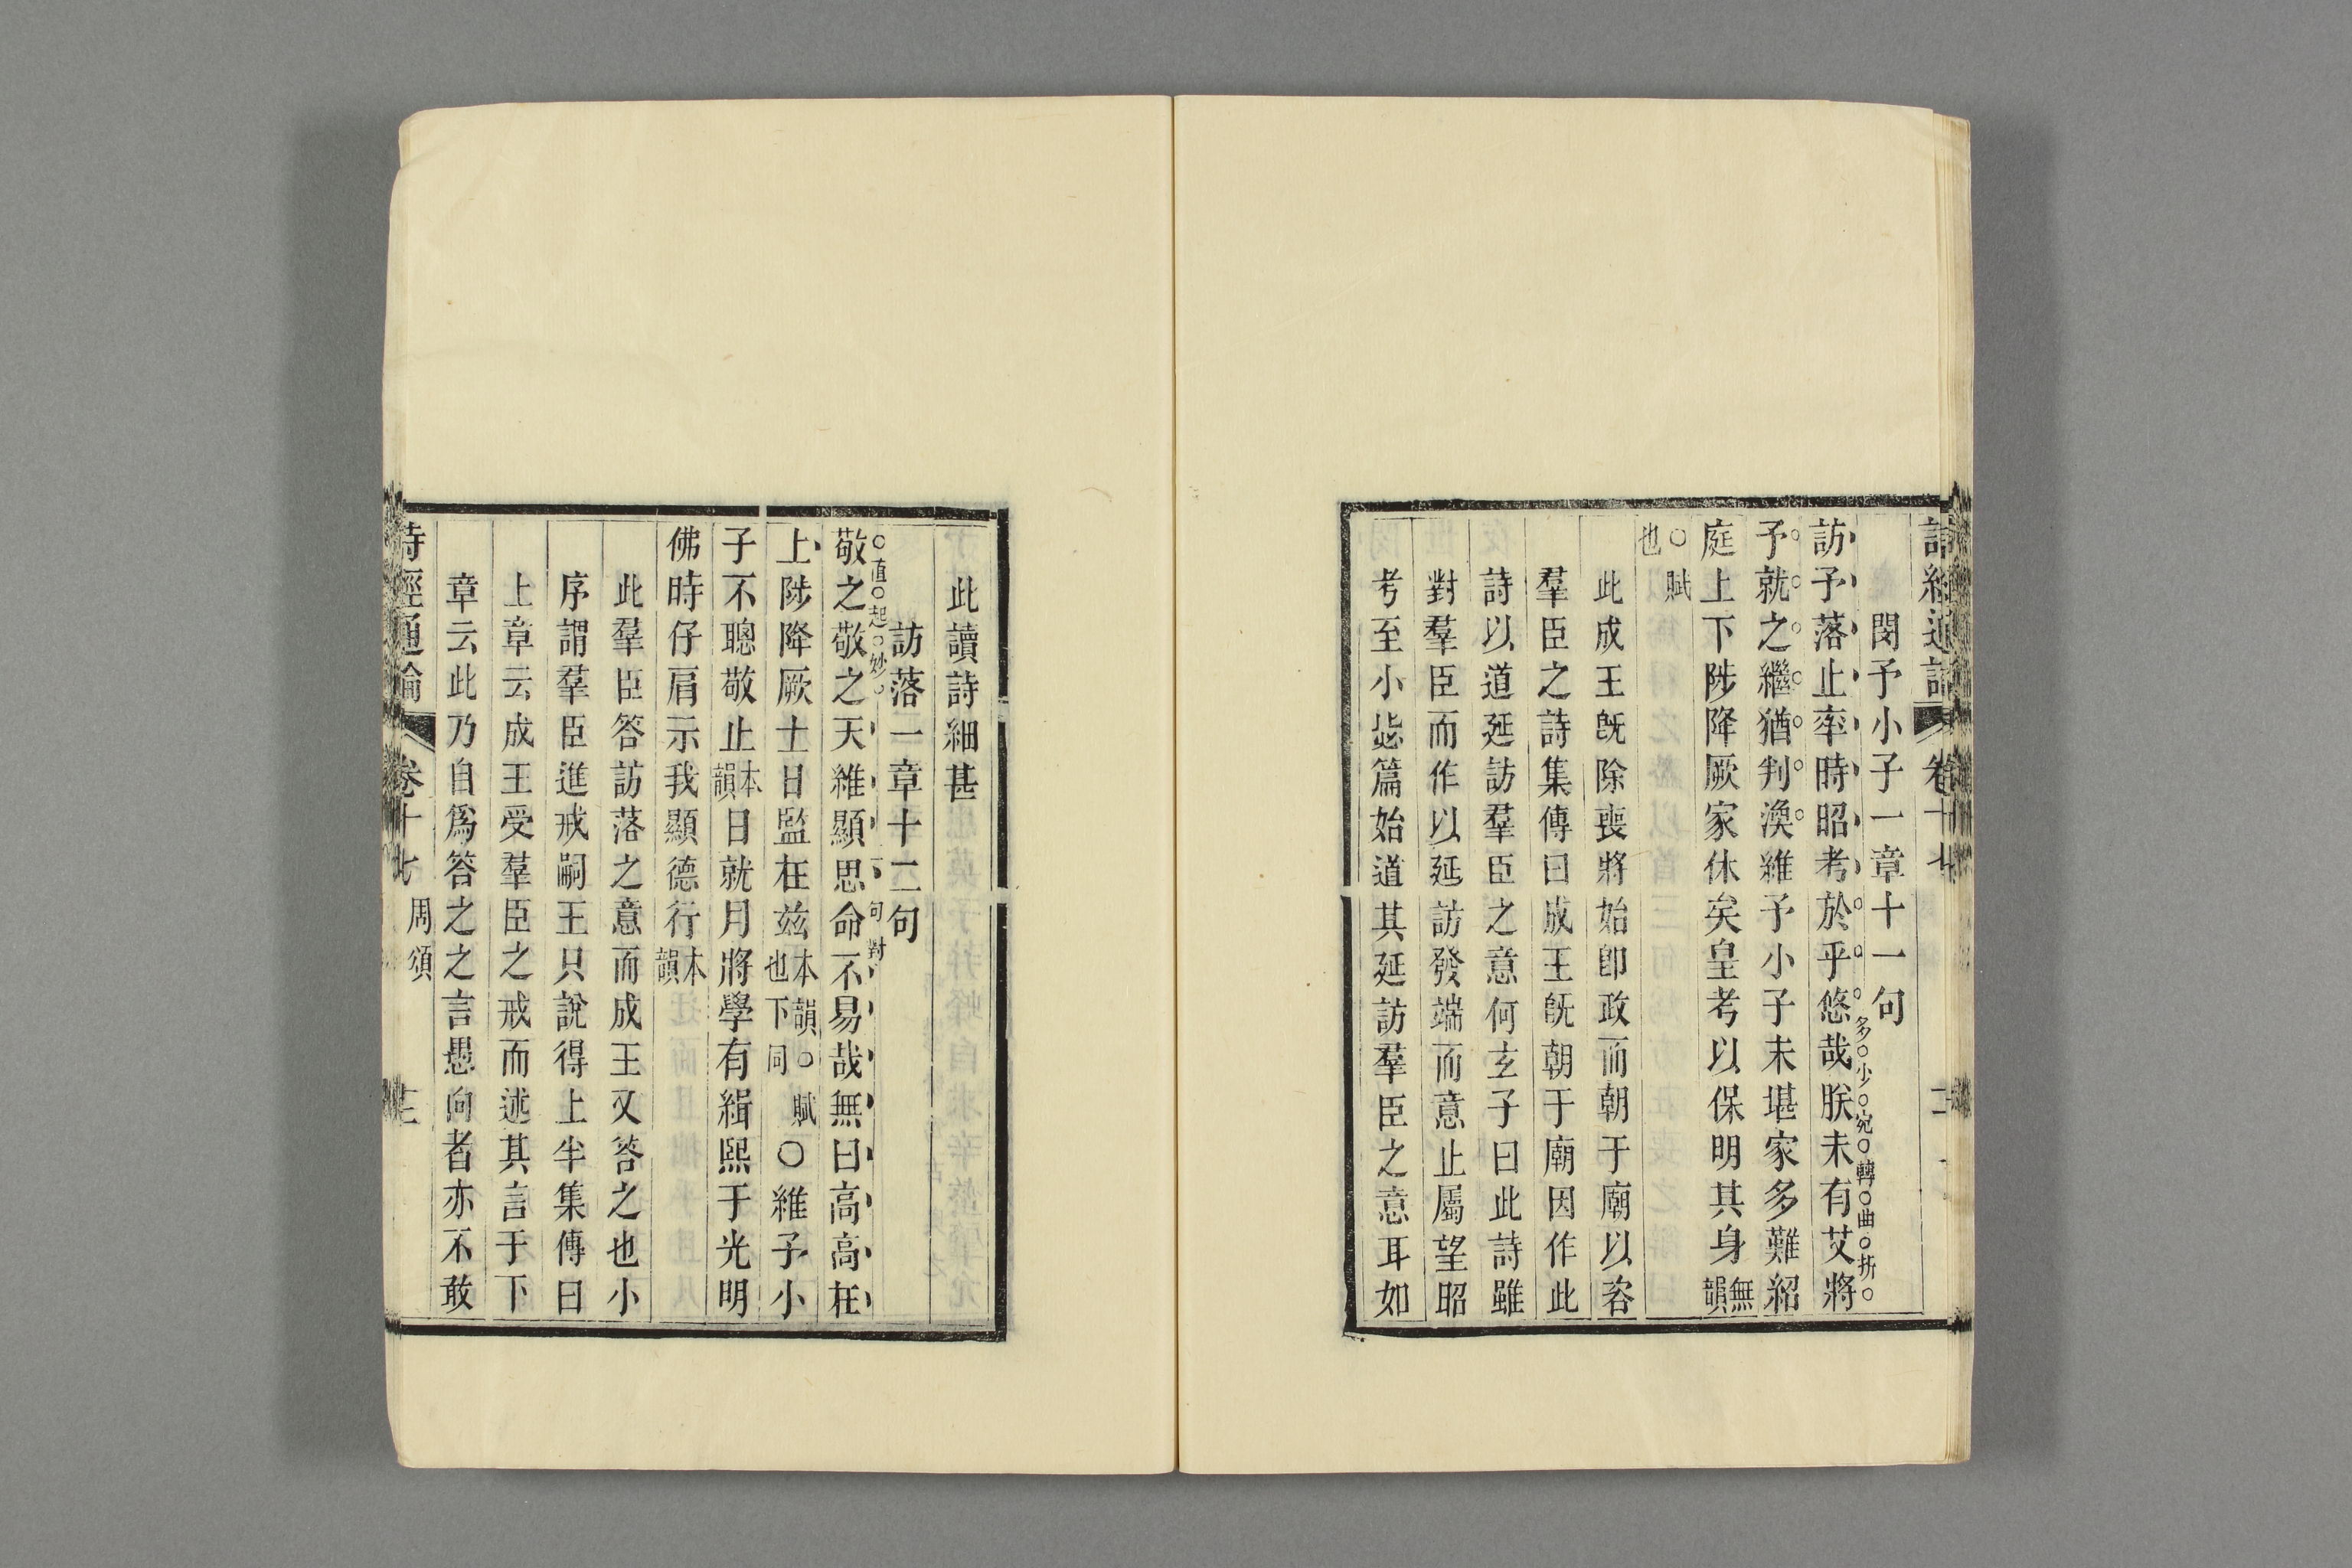 詩經通論 卷十七
閔予小子一章十一句
訪予落止率時昭考於乎悠哉朕未有艾將
多少宛轉曲折
予就之繼猶判渙維予小子未堪家多難紹
庭上下陟降厥家休矣皇考以保明其身無韻
○賦也
此成王旣除喪將始卽政而朝于廟以咨
羣臣之詩集傳曰成王旣朝于廟因作此
詩以道延訪羣臣之意何玄子曰此詩雖
對羣臣而作以延訪發端而意止屬望昭
考至小毖篇始道其延訪羣臣之意耳如
此讀詩細甚
訪落一章十二句
○直○起○妙○
敬之敬之天維顯思命不易哉無曰高高在
二句對
上陟降厥士日監在茲本韻○賦也下同○維予小
子不聰敬止本韻日就月將學有緝熙于光明
佛時仔肩示我顯德行本韻
此羣臣答訪落之意而成王又答之也小
序謂羣臣進戒嗣王只說得上半集傳曰
上章云成王受羣臣之戒而述其言于下
章云此乃自爲答之之言愚向者亦不敢
詩經通論 卷十七 周頌